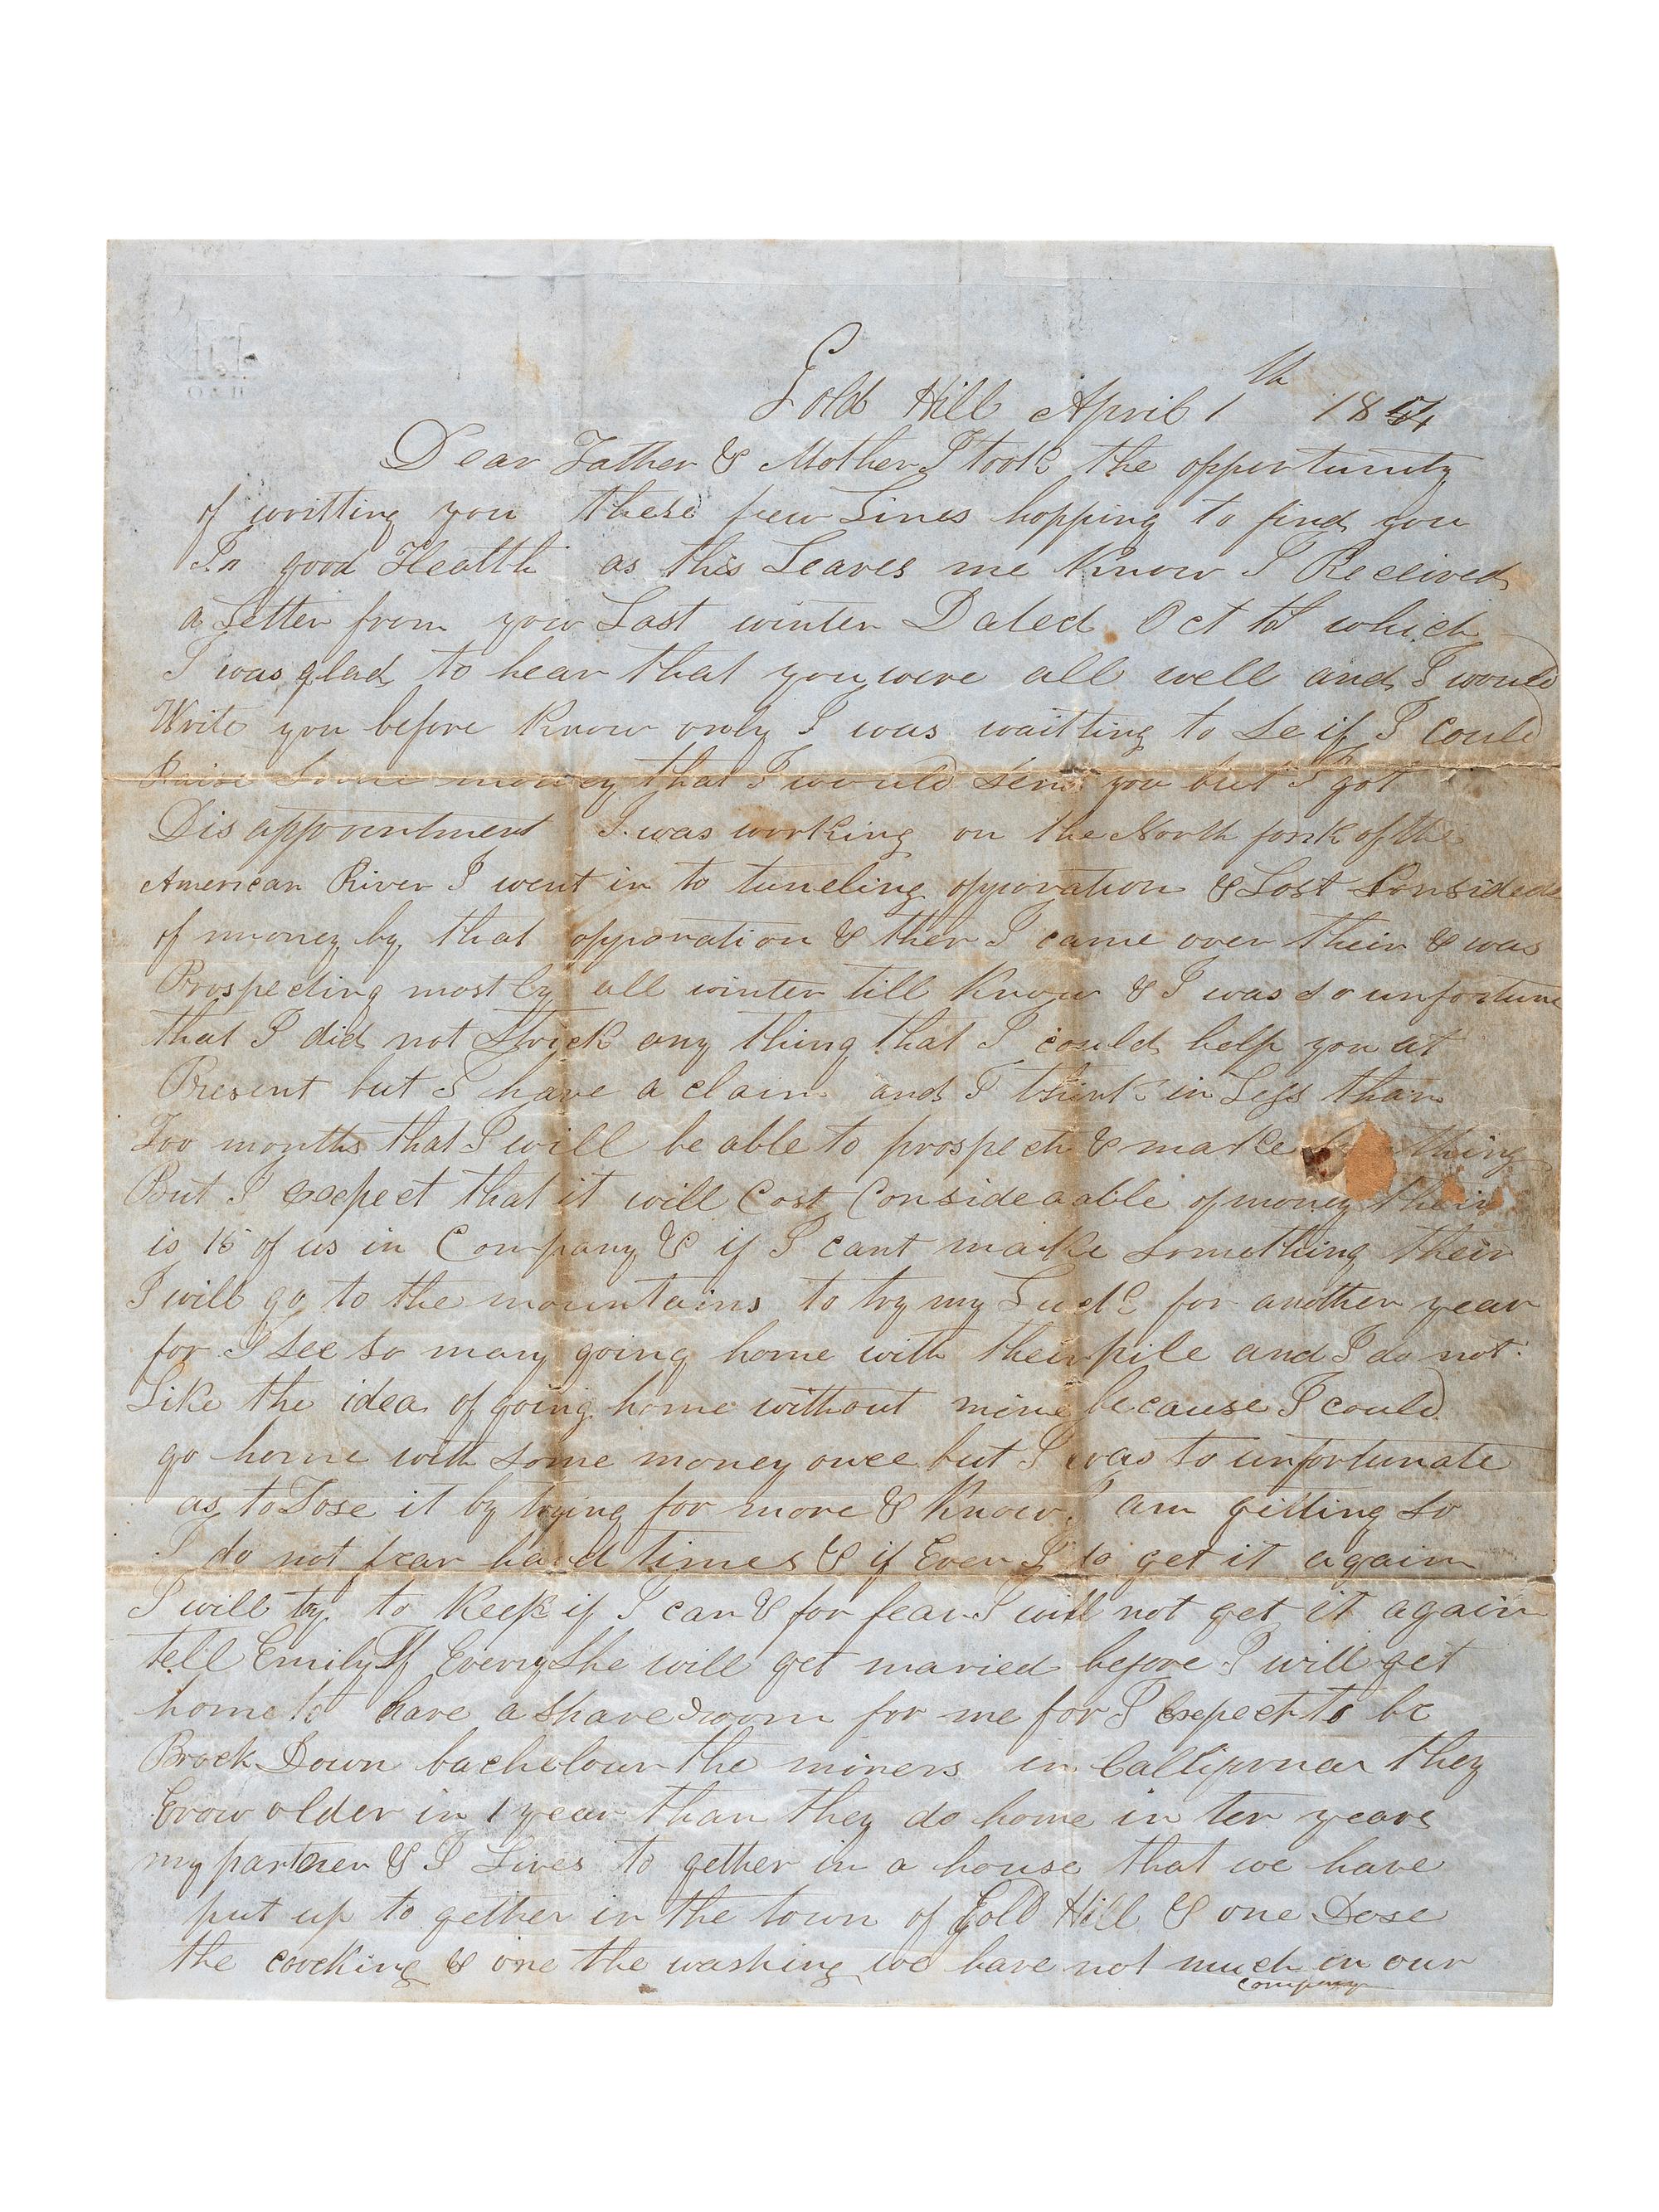 Gold Hill April 1th 1854
Dear Father & Mother I took the opportunity
of writting you these few Lines hopping to find you
In good Health as this Leaves me Know I Received
a Letter from you Last winter Dated Oct which
I was glad to hear that you were all well and I would
Write you before Know only I was waitting to Se if I could
Raise Some money that I would Send you but I got
Disappointment I was working on the North fork of the
American River I went in to tuneling opporation & Lost Considede
of money by that opporation & then I came over their & was
Prospecting mostly all winter till Know & I was so unfortune
that I did not Strick any thing that I could help you at
Present but I have a claim and I think in Less than
Too months that I will be able to prospect & make thing
But I Excpect that it will Cost Consideaable of money their
is 15 of us in Company & if I cant make Something their
I will go to the mountains to try my Luck for another year
for I See So many going home with their pile and I do not
Like the idea of going home without mine because I could
go home with Some money once but I was to unfortunate
as to Lose it by trying for more & Know I am gitting So
I do not fear hard times & if Ever I do get it again
I will try to Keep if I can & for fear I will not get it again
tell Emily If Every She will get maried before I will get
home to have a Share room for me for I Expect to be
Brock Down bachelour the miners in Califprnear they
Grow older in 1 year than they do home in ten years
my partener & I Lives to gether in a house that we have
put up to gether in the town of Gold Hill & one Dose
the coocking & one the washing we have not much in our
company